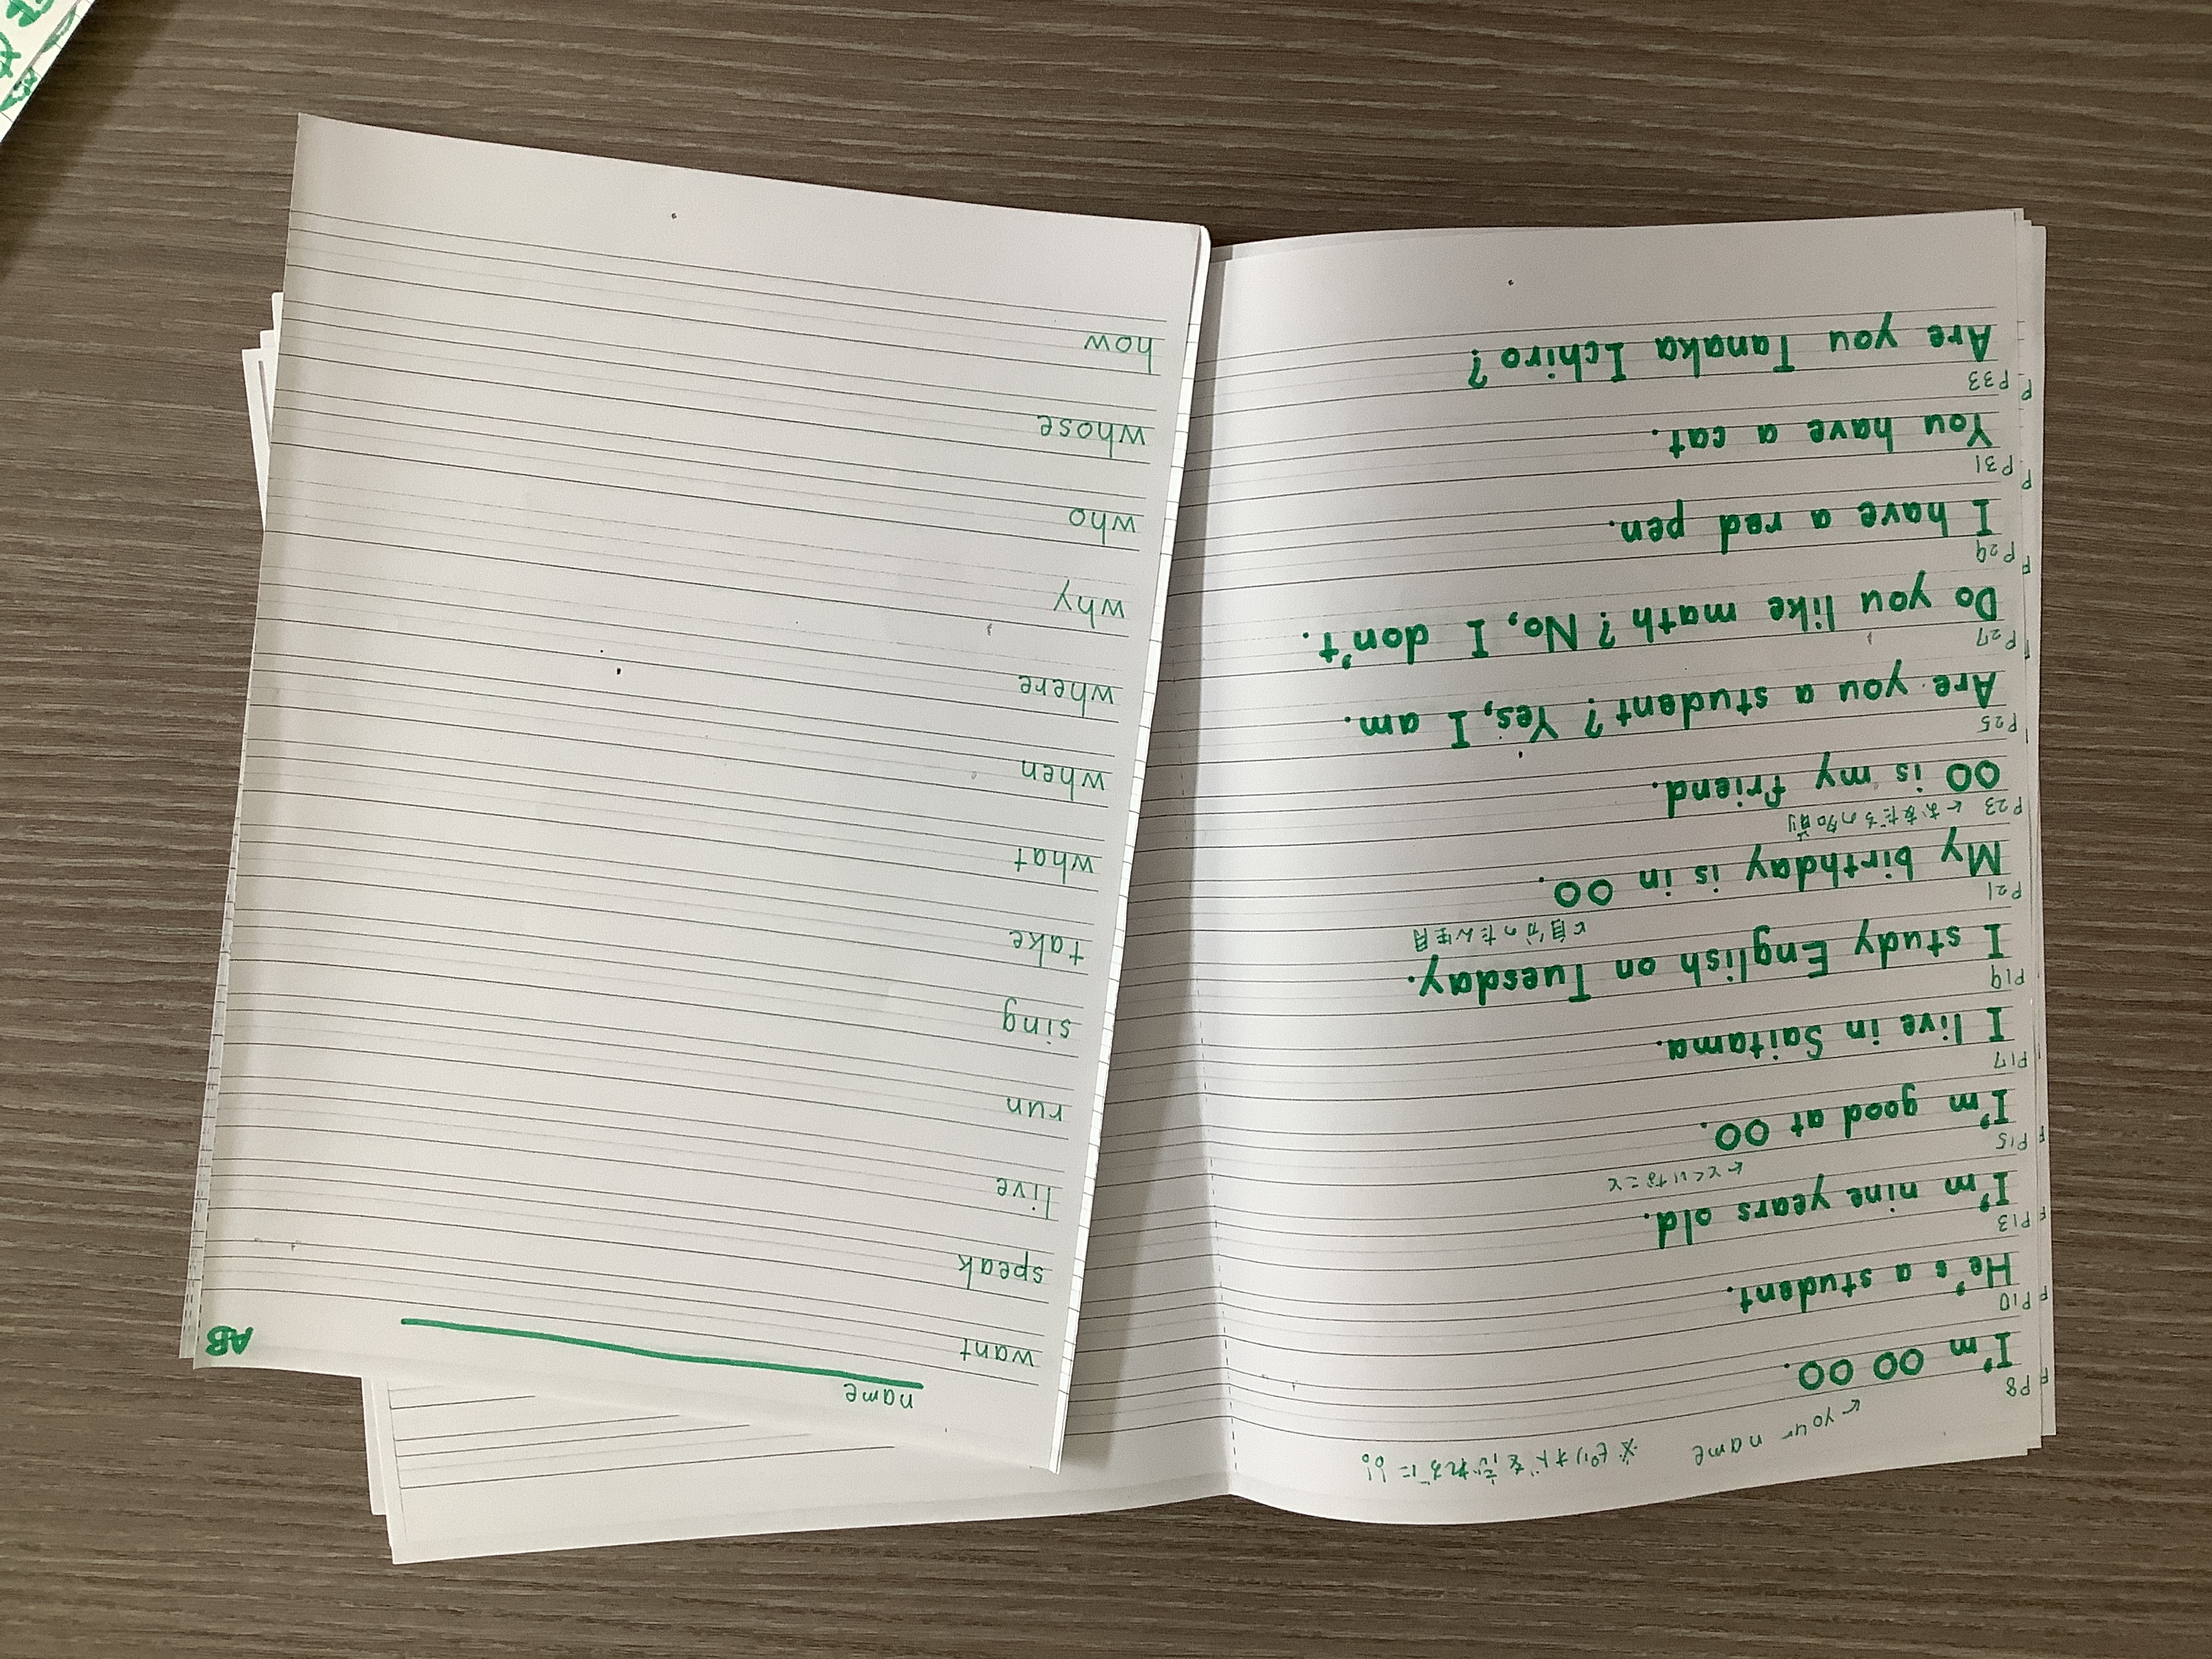 ← your name ※ピリオドを忘れずに!!
P8
I'm OO OO.
P10
He's a student.
P13
I'm nine years old.
← とくいなこと
P15
I'm good at OO.
P17
I live in Saitama.
P19
I study English on Tuesday.
← 自分のたん生月
P21
My birthday is in OO.
P23 ← お友だちの名前
OO is my friend.
P25
Are you a student? Yes, I am.
P27
Do you like math? No, I don't.
P29
I have a red pen.
P31
You have a cat.
P33
Are you Tanaka Ichiro?
name
AB
want
speak
live
run
sing
take
what
when
where
why
who
whose
how